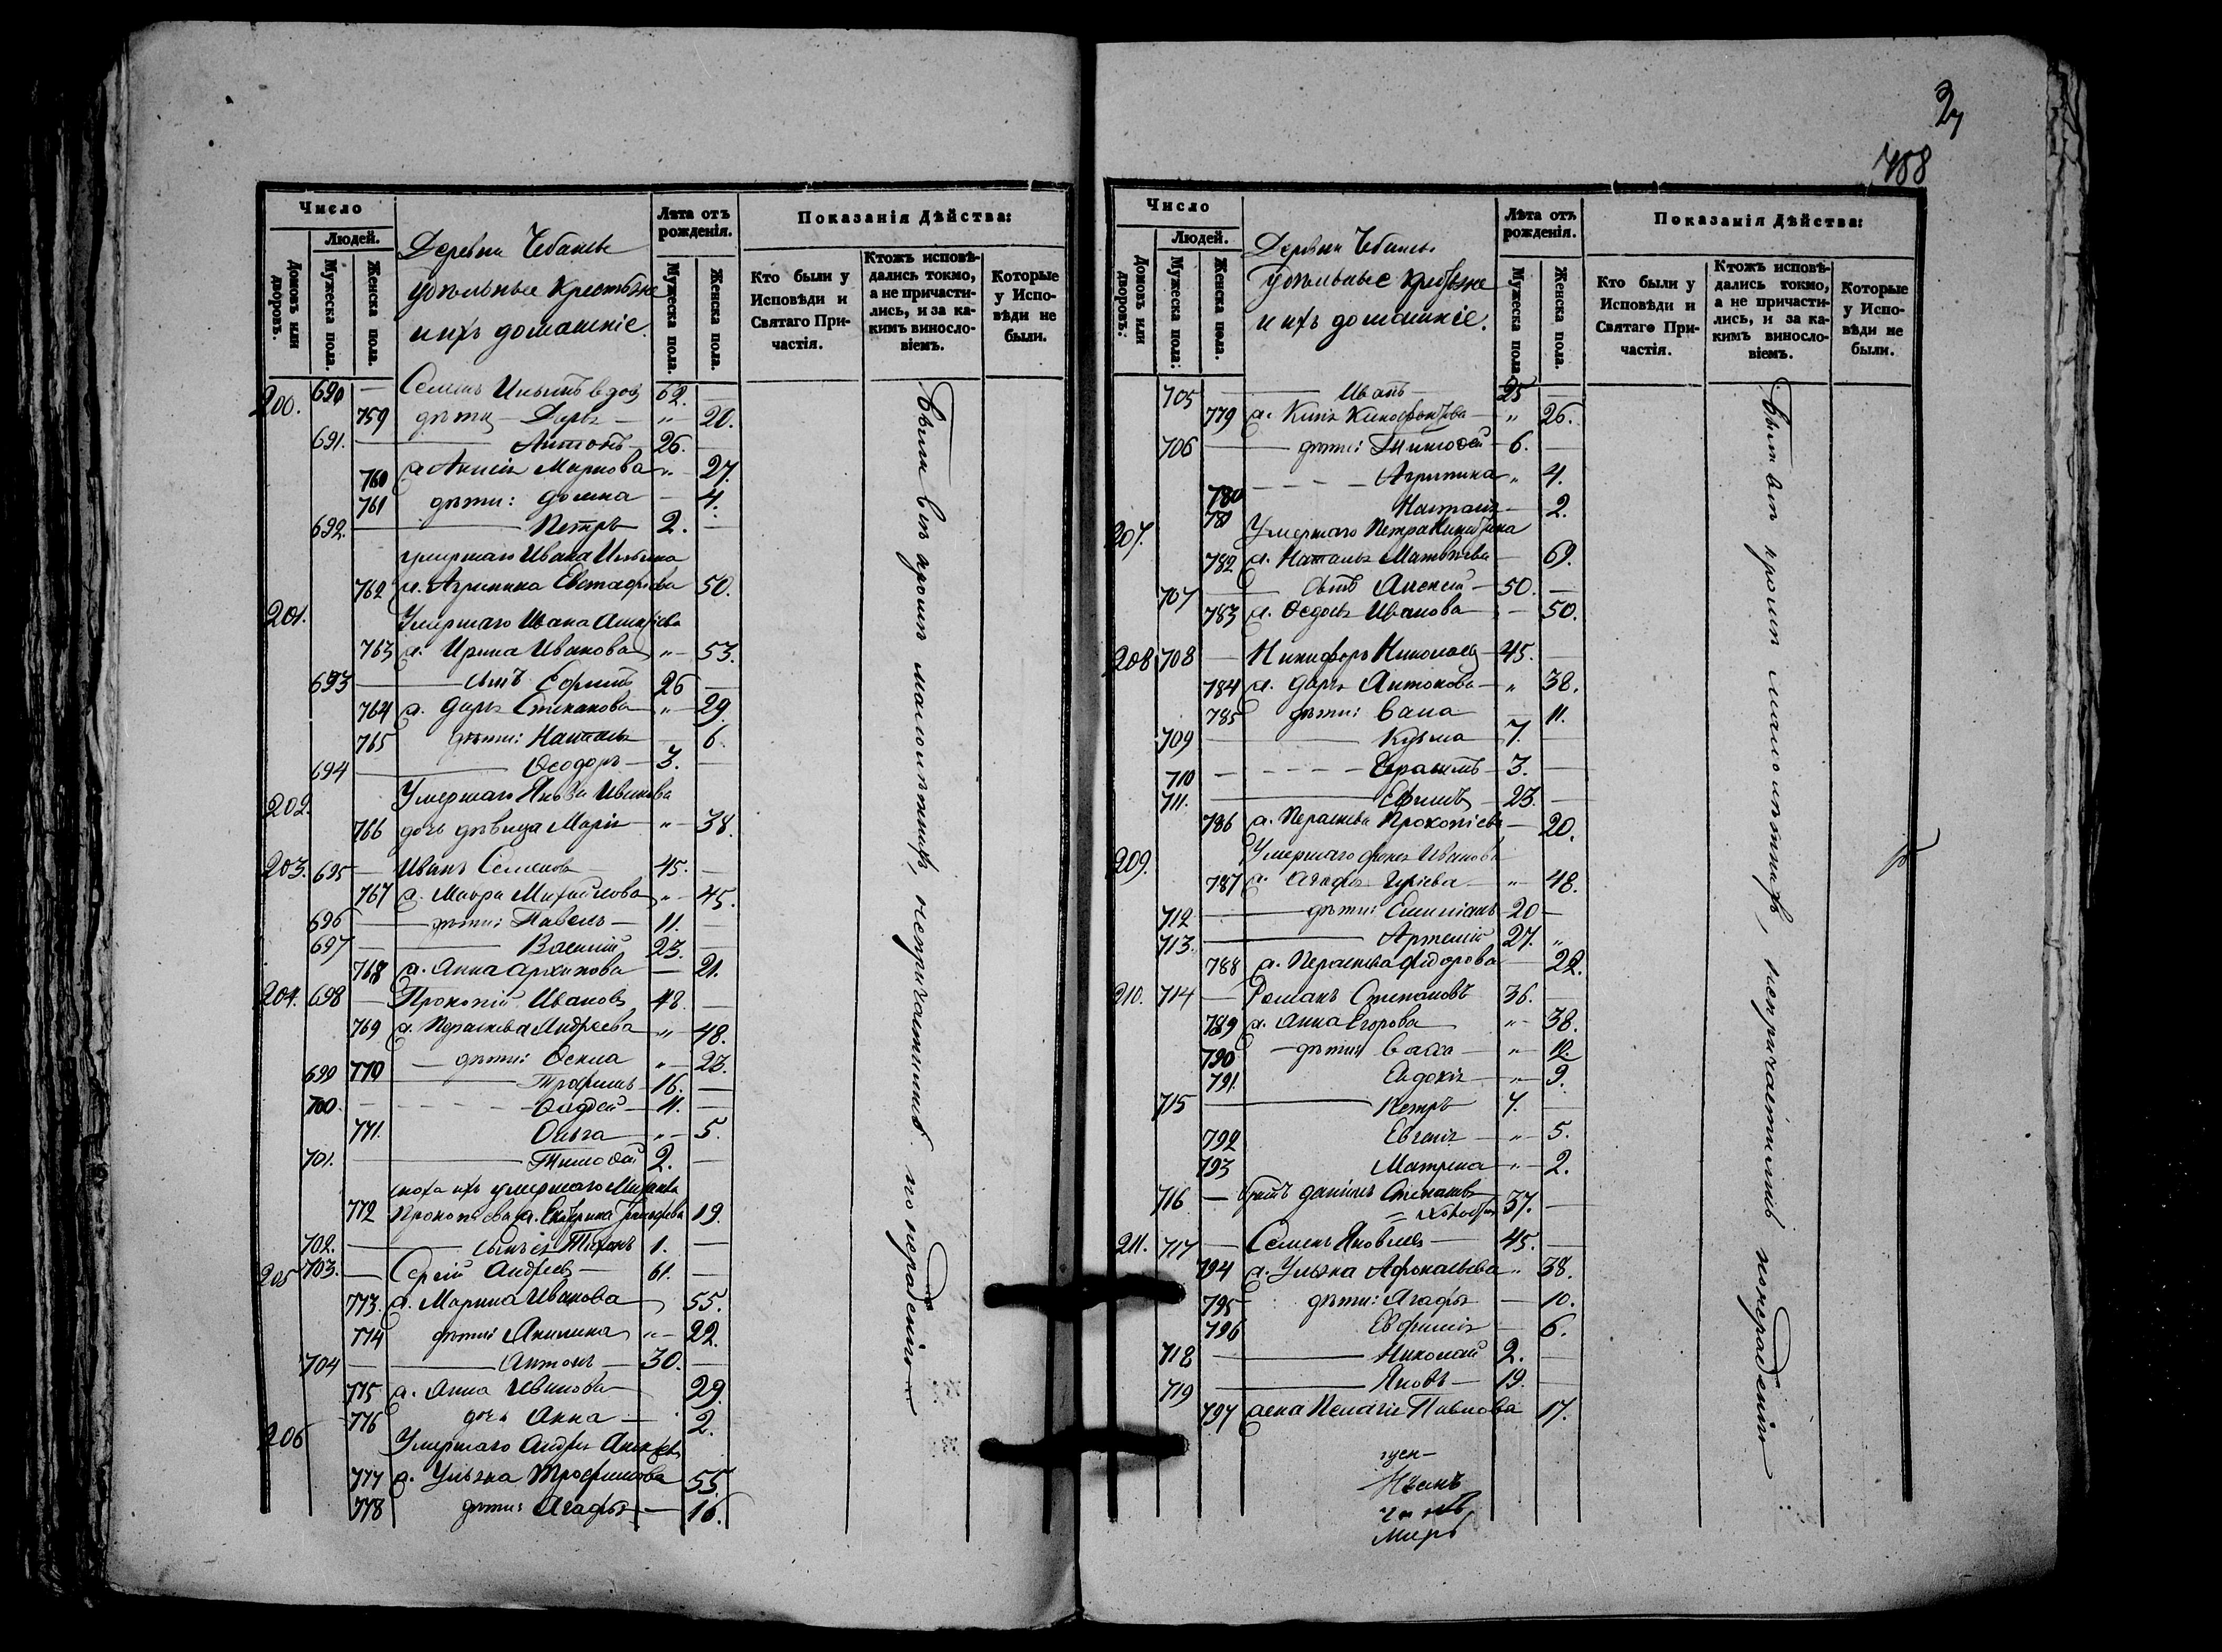 Число
Людей.
Домовъ или дворовъ.
Мужеска пола.
Женска пола.
Деревни Чебаксы
удѣльные крестьяне
и ихъ домашніе.
Лѣта отъ рожденія.
Мужеска пола.
Женска пола.
Показанія Дѣйства:
Кто были у Исповѣди и Святаго Причастія.
Ктожъ исповѣдались токмо, а не причастились, и за какимъ винословіемъ.
Которые у Исповѣди не были.
200. 690 — 62. —
759 дѣти — Дарья — „ — 20.
691. — Антонъ — 26. —
760 ж. Анисія Маркова „ — 27.
761 дѣти: Домна — 4.
692. — Петръ — 2. —
умершаго Ивана Ильина
762 ж. Агрипина Евстафіева 50.
201. Умершаго Ивана Алексѣева
763 ж. Ирина Иванова „ — 53.
693 — сынъ Ефимъ 26 —
764 ж. Дарья Степанова — „ — 29.
765 дѣти: Наталья — 6.
694 — Ѳеодоръ — 3. —
202. Умершаго Якова Иванова
766 дочь дѣвица Марія — „ — 38.
203. 695 — Иванъ Семеновъ 45. —
767 ж. Мавра Михайлова „ — 45.
696 — дѣти: Павелъ — 11. —
697 — Василій 23. —
768 ж. Анна Архипова — 21.
204. 698 — Прокопій Ивановъ 48. —
769 ж. Параскева Андреева „ 48.
770 — дѣти: „ — 23.
699 — Трофимъ — 16. —
700. — Андрей — 11. —
771. Ольга — „ — 5.
701. — Тимоѳей 2. —
сноха ихъ умершаго Михаила
772 Прокопьева ж. Екатерина 19.
702. — сынъ ея Тихонъ 1. —
205 703. — Сергій Андреевъ — 61. —
773. ж. Марина Иванова 55.
774 дѣти: Акилина „ — 22.
704 — Антонъ — 30. —
775 ж. Анна Иванова 29.
776 дочь Анна — 2.
206 Умершаго Андрея Алексѣева
777 ж. Ульяна Трофимова 55.
778 дѣти: Агафья — 16.
Были всѣ кромѣ малолѣтнихъ, непричастились по нерадѣнію
27
788
Число
Людей.
Домовъ или дворовъ:
Мужеска пола:
Женска пола.
Деревни Чебаксы.
удѣльные крестьяне
и ихъ домашніе.
Лѣта отъ рожденія.
Мужеска пола.
Женска пола.
Показанія Дѣйства:
Кто были у Исповѣди и Святаго Причастія.
Ктожъ исповѣдались токмо, а не причастились, и за какимъ винословіемъ.
Которые у Исповѣди не были.
705 — Иванъ — 25 —
779 ж. „ 26.
706 — дѣти: Тимоѳей — 6. —
780 — Агрипина „ 4.
781 Наталія — 2.
207. Умершаго Петра Никитина
782 ж. Наталья Матвѣева — 69.
707 — сынъ Алексѣй — 50. —
783 ж. Ѳедосья Иванова — 50.
208 708 — Никифоръ Николаевъ — 45. —
784 ж. Дарья Антонова — „ 38.
785 дѣти: Васа — 11.
709 — Кузьма 7. —
710 — Герасимъ — 3. —
711. — Ефимъ — 23. —
786 ж. Параскева Прокопіева — 20.
209. Умершаго Фомы Иванова
787 ж. Агафья Гурьева — „ 48.
712 — дѣти: Емиліанъ 20 —
713. — Артемій 27. „
788 ж. Параскева Ѳедорова — 22.
210. 714 — Романъ Степановъ 36. —
789 ж. Анна Егорова „ — 38.
790 — дѣти: Васса — „ — 12.
791. Евдокія — „ — 9.
715 — Петръ — 7. —
792 Евгенія — „ — 5.
793 Матрена — „ — 2.
716 — братъ Даніилъ Степановъ
= холостъ 37. —
211. 717 — Семенъ Яковлевъ — 45. —
794 ж. Ульяна Афонасьева „ 38.
795 дѣти: Агафья — 10.
796 Евфимія — 6.
718 — Николай 2. —
719 — Яковъ — 19. —
797 жена Пелагія Павлова 17.
Были всѣ кромѣ малолѣтнихъ, непричастились по нерадѣнію